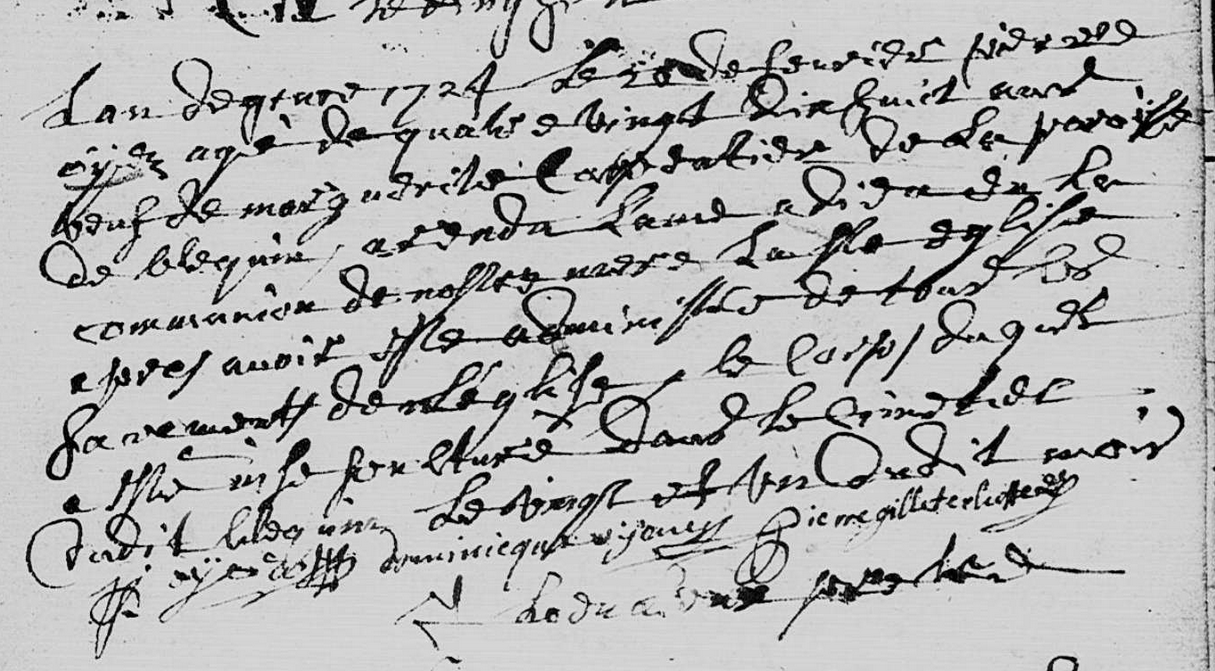 Lan de grace 1724 le de feurier pierre
oyez agé de quatre vingt dix huict ans
veuf de marguerite Carpentier de la paroisse
de blequin, a rendu lame a dieu en la
communion de nostre mere la Ste eglise
apres auoir esté administré de tous les
sacraments de leglise, le corps duquel
a esté inhe pculturé dans le Cimetier
dudit blequin le vingt et un dudit mois
dominicque pierre gille